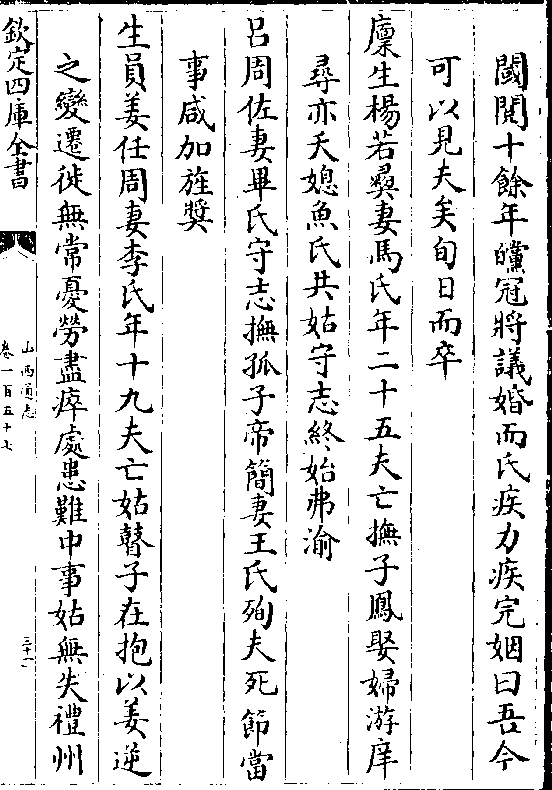 閾閱十餘年爌冠將議婚而氏疾力疾完姻曰吾今
可以見夫矣旬日而卒
廩生楊若彛妻馬氏年二十五夫亡撫子鳳娶婦游庠
尋亦夭媳魚氏共姑守志終始弗渝
呂周佐妻畢氏守志撫孤子帝簡妻王氏殉夫死節當
事咸加旌奬
生員姜任周妻李氏年十九夫亡姑瞽子在抱以姜逆
之變遷徙無常憂勞盡瘁處患難中事姑無失禮州
欽定四庫全書
山西通志
卷一百五十七
三十一